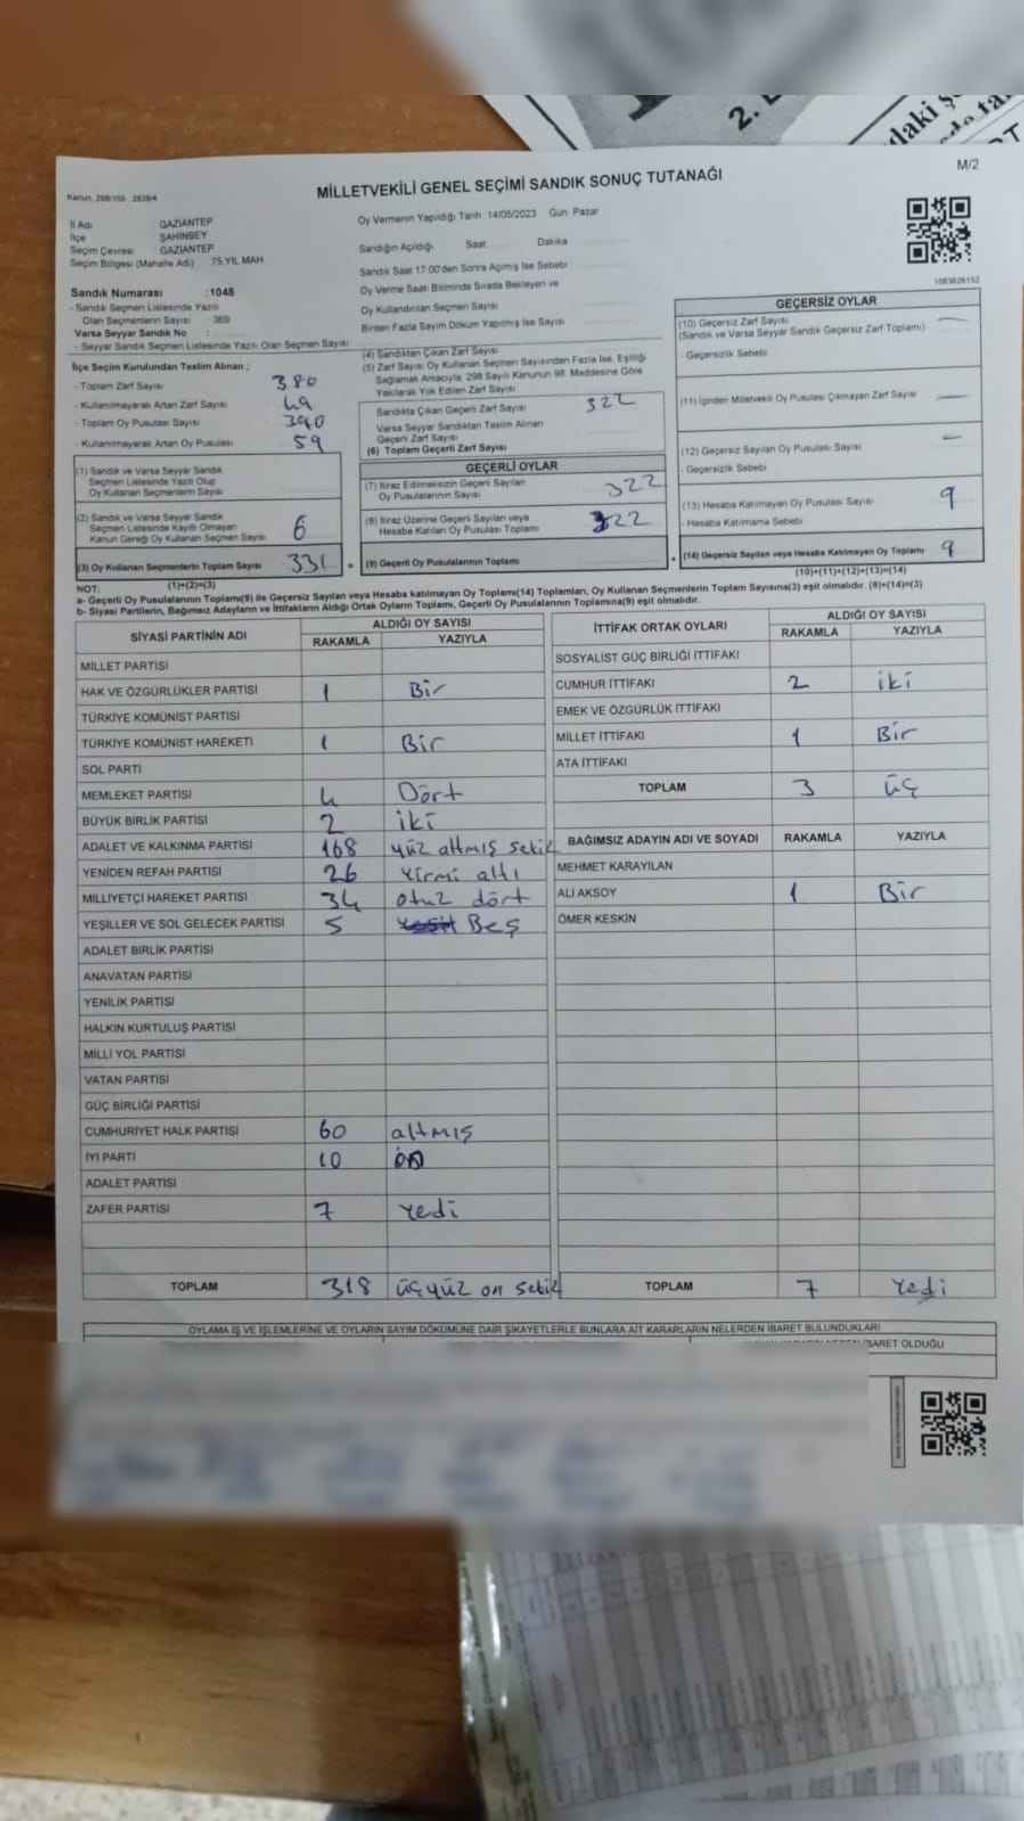 2.
daki ş
M/2
MİLLETVEKİLİ GENEL SEÇİMİ SANDIK SONUÇ TUTANAĞI
İl Adı GAZİANTEP
İlçe ŞAHİNBEY
Seçim Çevresi GAZİANTEP
Seçim Bölgesi (Mahalle Adı) 75.YIL MAH
Sandık Numarası :1048
- Sandık Seçmen Listesinde Yazılı
Olan Seçmenlerin Sayısı 369
Varsa Seyyar Sandık No :
- Seyyar Sandık Seçmen Listesinde Yazılı Olan Seçmen Sayısı
Oy Vermenin Yapıldığı Tarih: 14/05/2023 Gün: Pazar
Sandığın Açıldığı Saat Dakika
Sandık Saat 17:00'den Sonra Açılmış İse Sebebi
Oy Verme Saati Bitiminde Sırada Bekleyen ve
Oy Kullandırılan Seçmen Sayısı
Birden Fazla Sayım Döküm Yapılmış İse Sayısı
İlçe Seçim Kurulundan Teslim Alınan ;
- Toplam Zarf Sayısı 380
- Kullanılmayarak Artan Zarf Sayısı 49
- Toplam Oy Pusulası Sayısı 390
- Kullanılmayarak Artan Oy Pusulası 59
(1) Sandık ve Varsa Seyyar Sandık
Seçmen Listesinde Yazılı Olup
Oy Kullanan Seçmenlerin Sayısı
(2) Sandık ve Varsa Seyyar Sandık
Seçmen Listesinde Kayıtlı Olmayan
Kanun Gereği Oy Kullanan Seçmen Sayısı 6
(3) Oy Kullanan Seçmenlerin Toplam Sayısı 331
(1)+(2)=(3)
(4) Sandıktan Çıkan Zarf Sayısı
(5) Zarf Sayısı Oy Kullanan Seçmen Sayısından Fazla İse, Eşitliği
Sağlamak Amacıyla, 298 Sayılı Kanunun 98. Maddesine Göre
Yakılarak Yok Edilen Zarf Sayısı
Sandıkta Çıkan Geçerli Zarf Sayısı 322
Varsa Seyyar Sandıktan Teslim Alınan
Geçerli Zarf Sayısı
(6) Toplam Geçerli Zarf Sayısı
GEÇERLİ OYLAR
(7) İtiraz Edilmeksizin Geçerli Sayılan
Oy Pusulalarının Sayısı 322
(8) İtiraz Üzerine Geçerli Sayılan veya
Hesaba Katılan Oy Pusulası Toplamı 322
(9) Geçerli Oy Pusulalarının Toplamı
GEÇERSİZ OYLAR
(10) Geçersiz Zarf Sayısı
(Sandık ve Varsa Seyyar Sandık Geçersiz Zarf Toplamı)
- Geçersizlik Sebebi
(11) İçinden Milletvekili Oy Pusulası Çıkmayan Zarf Sayısı
(12) Geçersiz Sayılan Oy Pusulası Sayısı
- Geçersizlik Sebebi
(13) Hesaba Katılmayan Oy Pusulası Sayısı 9
- Hesaba Katılmama Sebebi
(14) Geçersiz Sayılan veya Hesaba Katılmayan Oy Toplamı 9
(10)+(11)+(12)+(13)=(14)
NOT:
a- Geçerli Oy Pusulalarının Toplamı(9) ile Geçersiz Sayılan veya Hesaba katılmayan Oy Toplamı(14) Toplamları, Oy Kullanan Seçmenlerin Toplam Sayısına(3) eşit olmalıdır. (9)+(14)=(3)
b- Siyasi Partilerin, Bağımsız Adayların ve İttifakların Aldığı Ortak Oyların Toplamı, Geçerli Oy Pusulalarının Toplamına(9) eşit olmalıdır.
SİYASİ PARTİNİN ADI ALDIĞI OY SAYISI
RAKAMLA YAZIYLA
MİLLET PARTİSİ
HAK VE ÖZGÜRLÜKLER PARTİSİ 1 Bir
TÜRKİYE KOMÜNİST PARTİSİ
TÜRKİYE KOMÜNİST HAREKETİ 1 Bir
SOL PARTİ
MEMLEKET PARTİSİ 4 Dört
BÜYÜK BİRLİK PARTİSİ 2 iki
ADALET VE KALKINMA PARTİSİ 168 yüz altmış sekiz
YENİDEN REFAH PARTİSİ 26 Yirmi altı
MİLLİYETÇİ HAREKET PARTİSİ 34 otuz dört
YEŞİLLER VE SOL GELECEK PARTİSİ 5 Beş
ADALET BİRLİK PARTİSİ
ANAVATAN PARTİSİ
YENİLİK PARTİSİ
HALKIN KURTULUŞ PARTİSİ
MİLLİ YOL PARTİSİ
VATAN PARTİSİ
GÜÇ BİRLİĞİ PARTİSİ
CUMHURİYET HALK PARTİSİ 60 altmış
İYİ PARTİ 10 on
ADALET PARTİSİ
ZAFER PARTİSİ 7 Yedi
TOPLAM 318 üçyüz on sekiz
İTTİFAK ORTAK OYLARI ALDIĞI OY SAYISI
RAKAMLA YAZIYLA
SOSYALİST GÜÇ BİRLİĞİ İTTİFAKI
CUMHUR İTTİFAKI 2 iki
EMEK VE ÖZGÜRLÜK İTTİFAKI
MİLLET İTTİFAKI 1 Bir
ATA İTTİFAKI
TOPLAM 3 üç
BAĞIMSIZ ADAYIN ADI VE SOYADI RAKAMLA YAZIYLA
MEHMET KARAYILAN
ALİ AKSOY 1 Bir
ÖMER KESKİN
TOPLAM 7 Yedi
OYLAMA İŞ VE İŞLEMLERİNE VE OYLARIN SAYIM DÖKÜMÜNE DAİR ŞİKAYETLERLE BUNLARA AİT KARARLARIN NELERDEN İBARET BULUNDUKLARI
BARET OLDUĞU